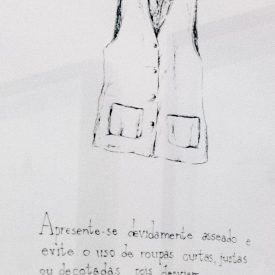 Apresente-se devidamente asseado e
evite o uso de roupas curtas, justas
ou decotadas, pois